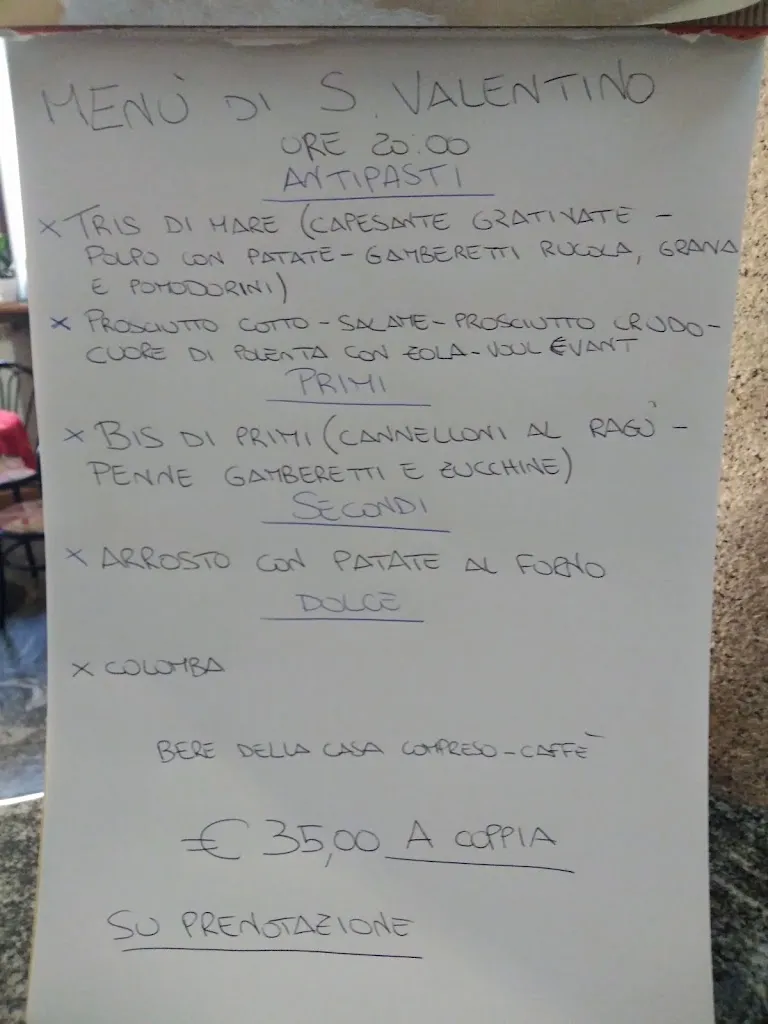 MENÙ DI S. VALENTINO
ORE 20:00
ANTIPASTI
x TRIS DI MARE (CAPESANTE GRATINATE -
POLPO CON PATATE - GAMBERETTI RUCOLA, GRANA
E POMODORINI)
x PROSCIUTTO COTTO - SALAME - PROSCIUTTO CRUDO -
CUORE DI POLENTA CON ZOLA - VOUL EVANT
PRIMI
x BIS DI PRIMI (CANNELLONI AL RAGÙ -
PENNE GAMBERETTI E ZUCCHINE)
SECONDI
x ARROSTO CON PATATE AL FORNO
DOLCE
x COLOMBA
BERE DELLA CASA COMPRESO - CAFFÈ
€ 35,00 A COPPIA
SU PRENOTAZIONE